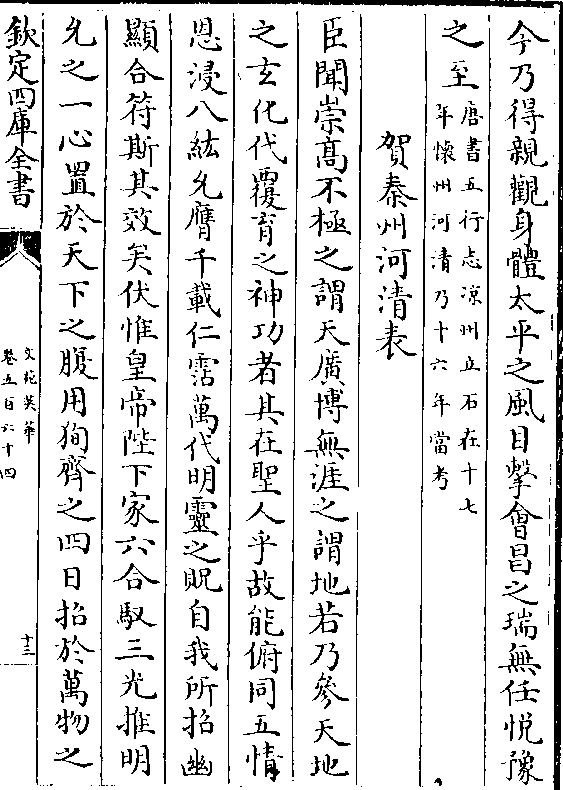 今乃得親觀身體太平之風目擊會昌之瑞無任悦豫
之至唐書五行志凉州立石在十七
年懷州河清乃十六年當考
賀秦州河清表
臣聞崇髙不極之謂天廣博無涯之謂地若乃參天地
之玄化代覆育之神功者其在聖人乎故能俯同五情
恩浸八紘允膺千載仁霑萬代明靈之貺自我所招幽
顯合符斯其效矣伏惟皇帝陛下家六合馭三光推明
允之一心置於天下之腹用狥齊之四目招於萬物之
欽定四庫全書
文苑英華
卷五百六十四
十三